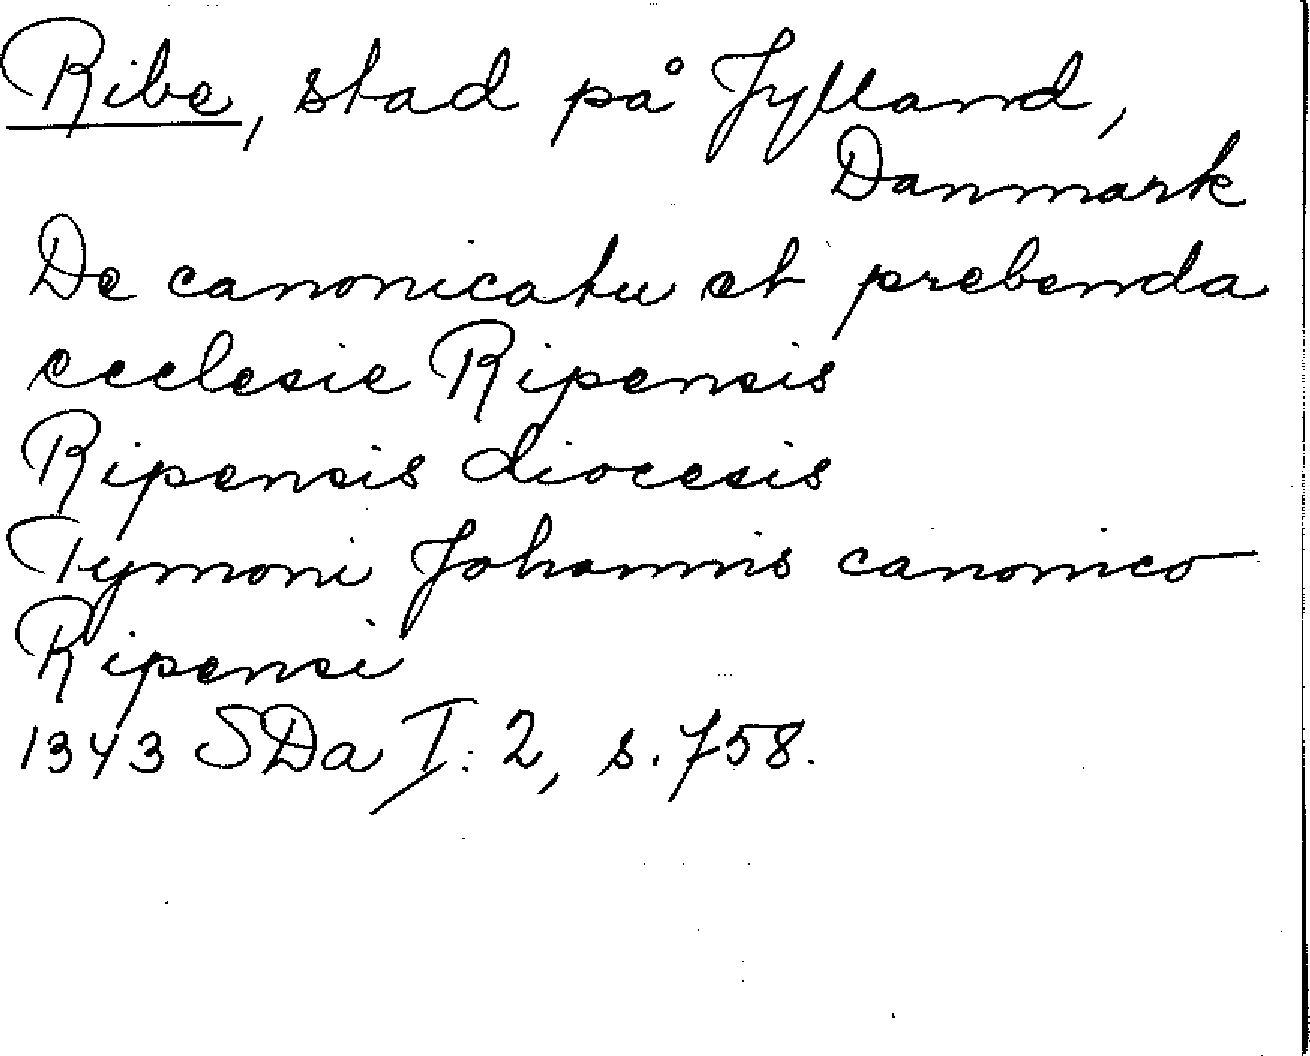 Ribe, stad på Jylland,
Danmark
De canonicatu et prebenda
ecclesie Ripensis
Ripensis diocesis
Tymoni Johannis canonico
Ripensi
1343 SDa I: 2, s. 758.